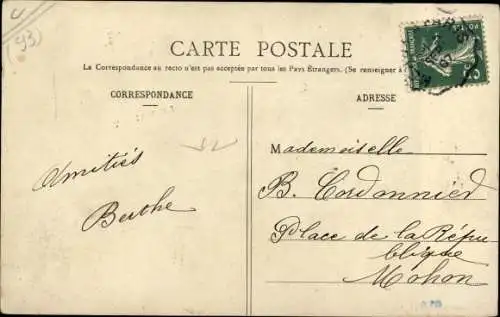 (93)
CARTE POSTALE
La Correspondance au recto n'est pas acceptée par tous les Pays Étrangers. (Se renseigner à
CORRESPONDANCE
ADRESSE
Amitiés
Berthe
Mademoiselle
B. Cordonnier
Place de la Répu
blique
Mohon